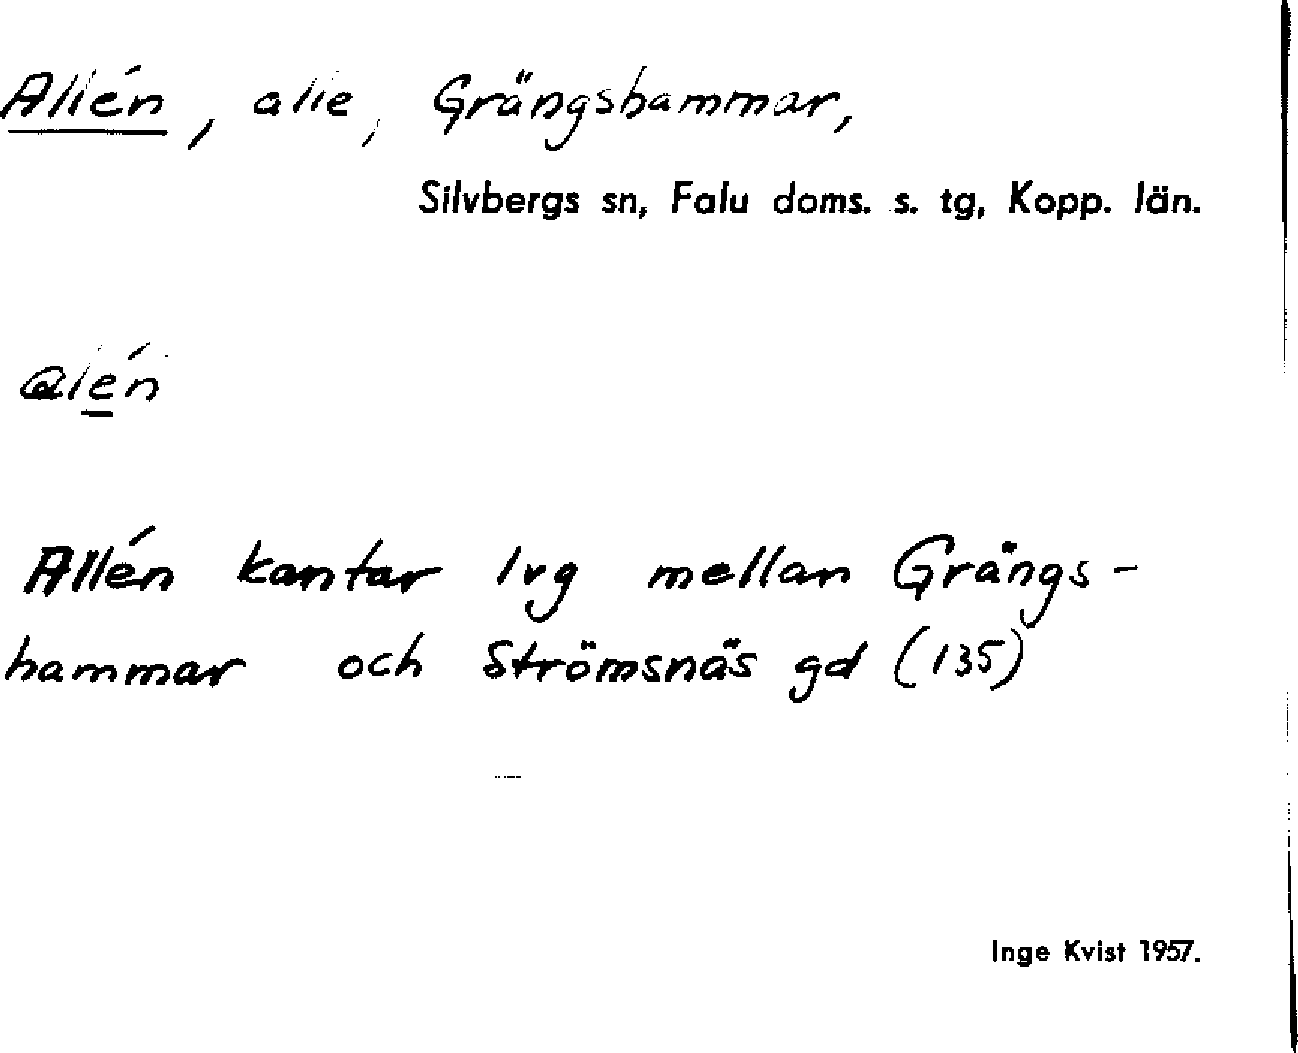 Allén, alle, Grängshammar,
Silvbergs sn, Falu doms. s. tg, Kopp. län.
alén
Allén kantar lvg mellan Grängs-
hammar och Strömsnäs gd (135)
Inge Kvist 1957.